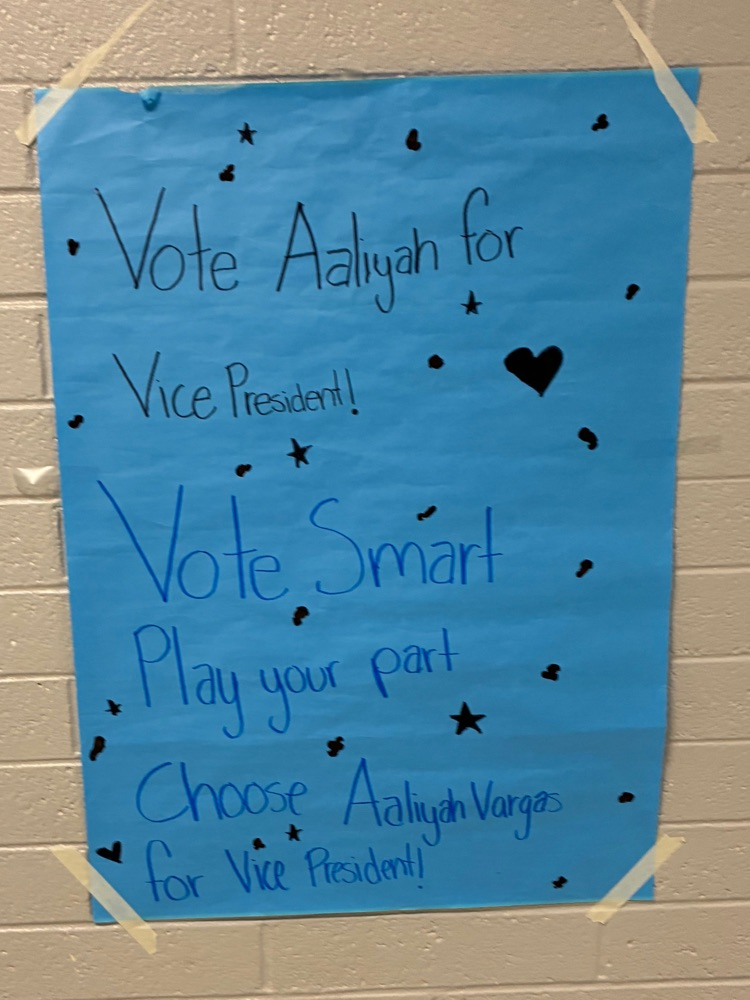 Vote Aaliyah for
Vice President!
Vote Smart
Play your part
Choose Aaliyah Vargas
for Vice President!